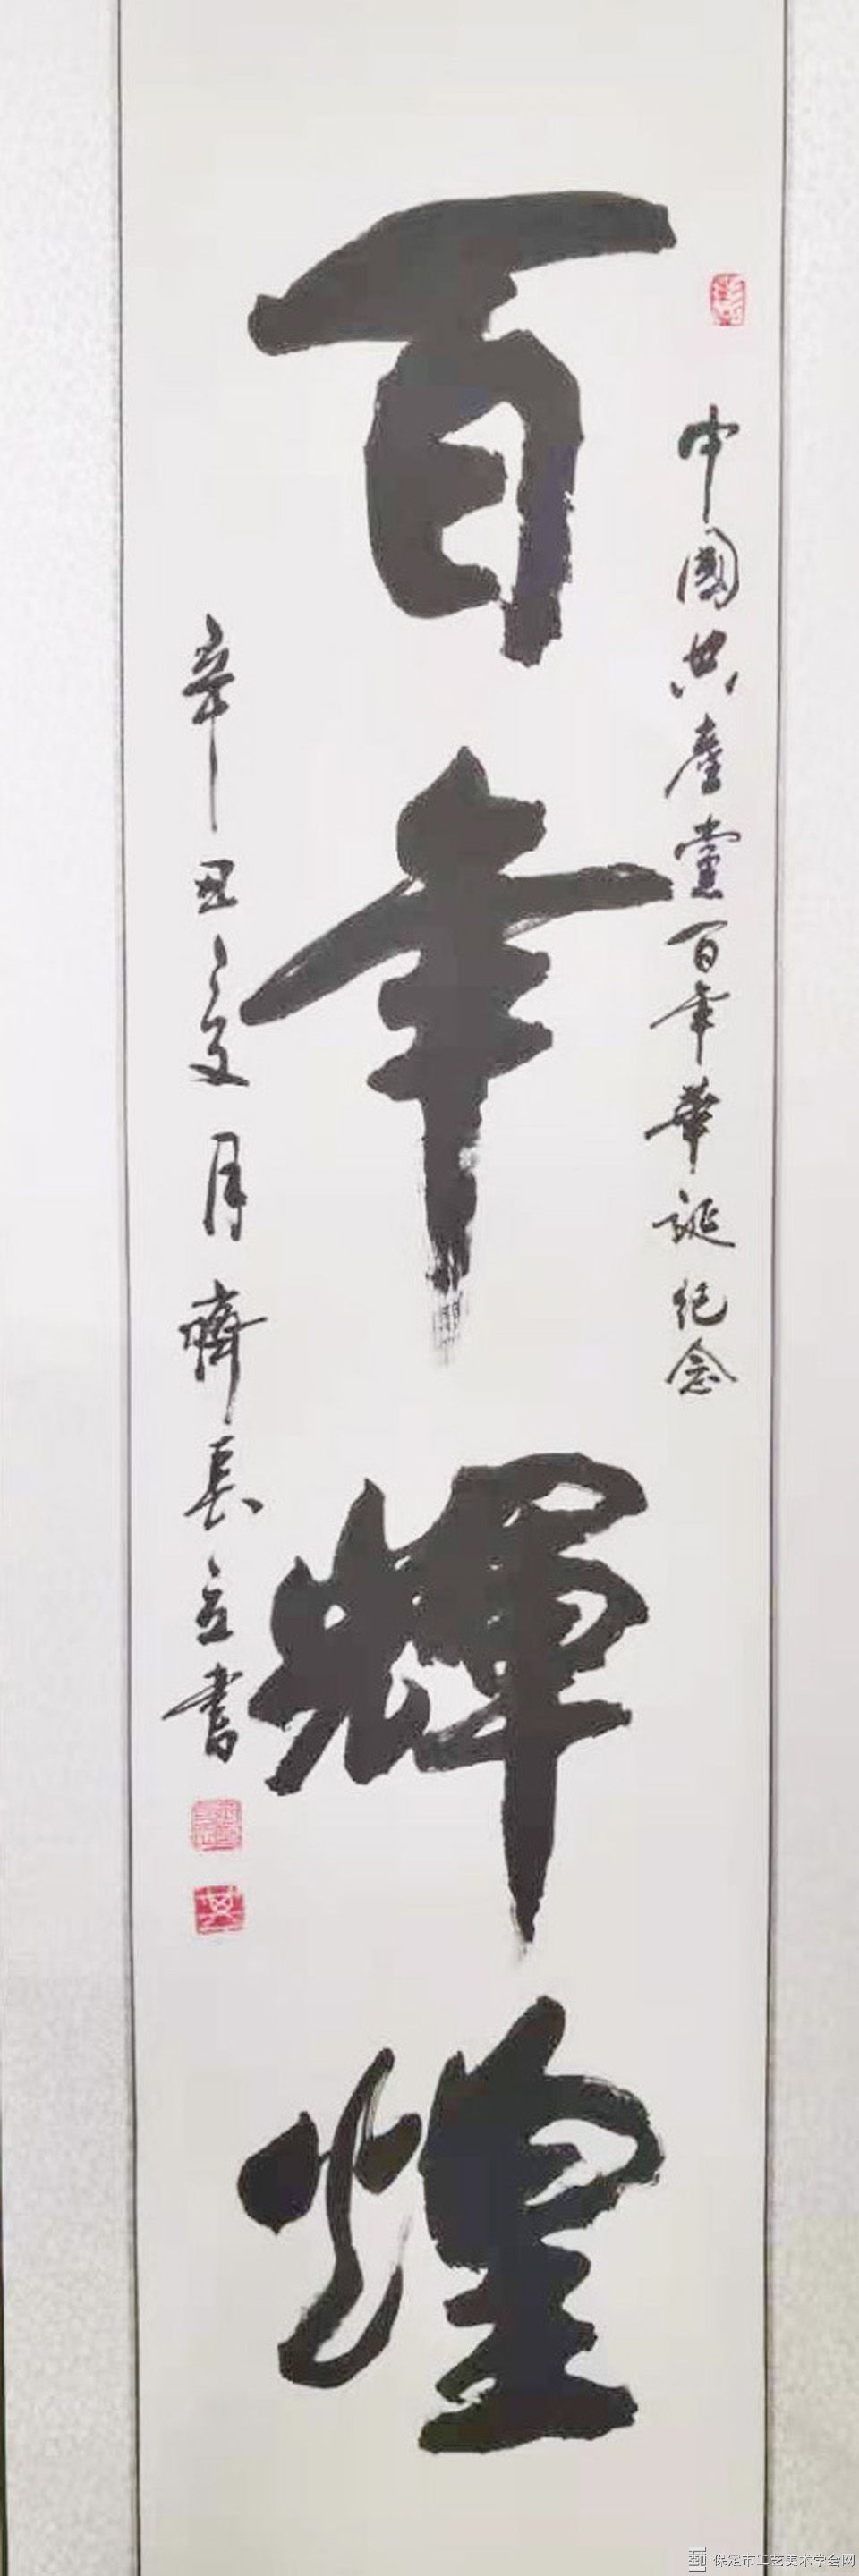 中國共產黨百年華誕纪念
百年輝煌
辛丑夏月齊長立書
保定市工艺美术学会网